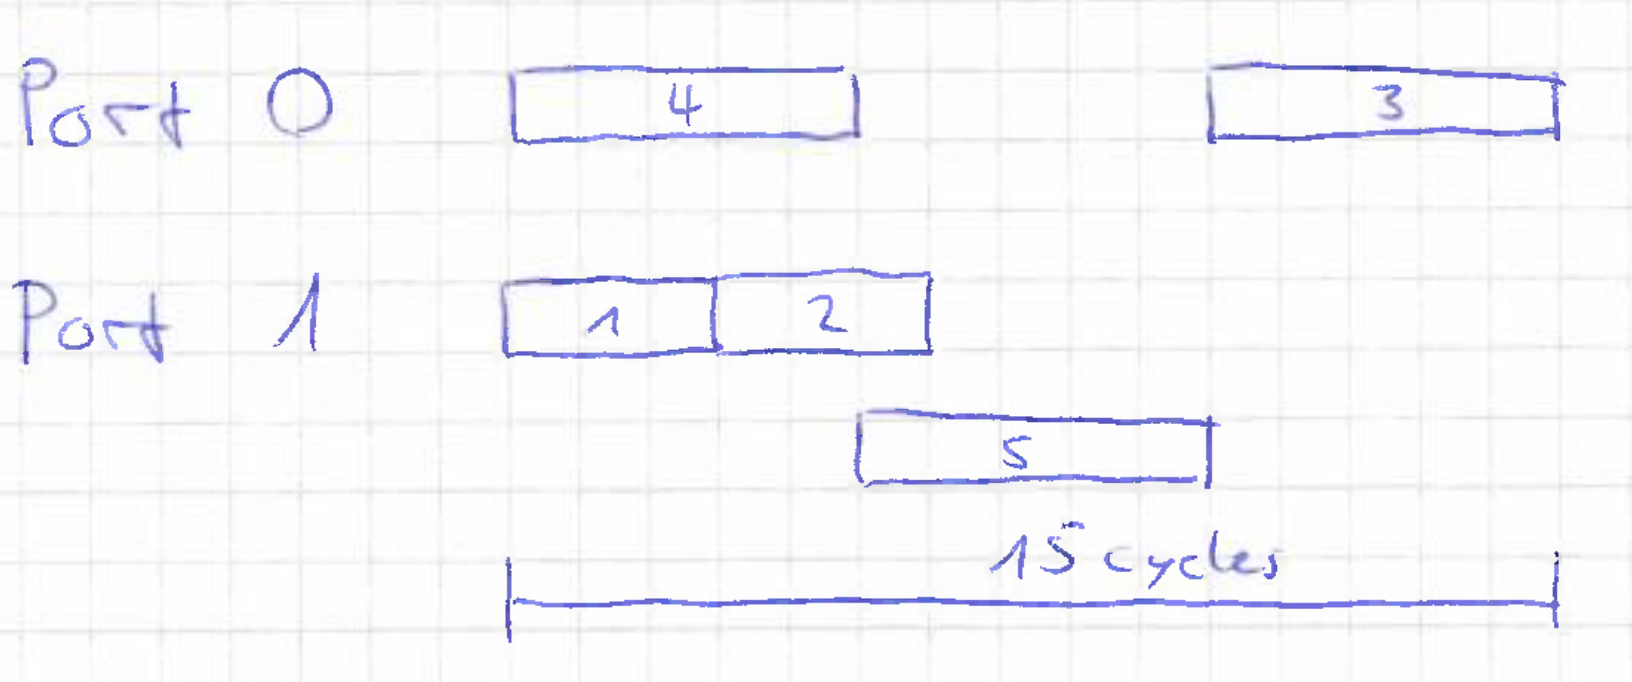 Port 0 4 3
Port 1 1 2
5
15 cycles